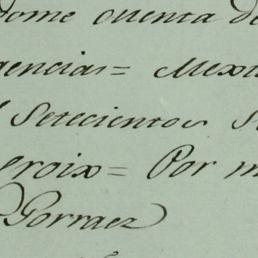 dome cuenta de
gencias = Mexi
Setecientos S
croix = Por m
Gorraez